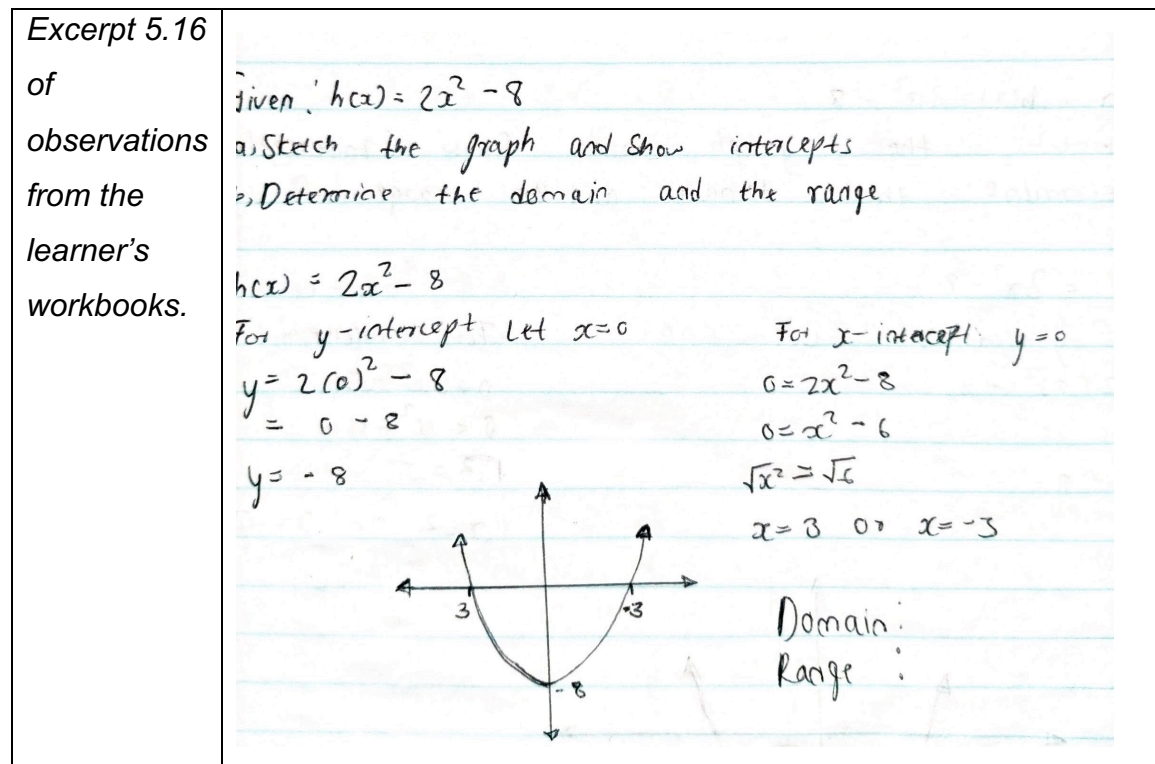 Excerpt 5.16
of
observations
from the
learner's
workbooks.
Given: h(x) = 2x² - 8
a, Sketch the graph and show intercepts
b, Determine the domain and the range
h(x) = 2x² - 8
For y-intercept Let x=0
y = 2(0)² - 8
= 0 - 8
y = - 8
For x-intercept: y=0
0 = 2x² - 8
0 = x² - 6
√x² = √6
x = 3 or x = -3
3
-3
-8
Domain:
Range :